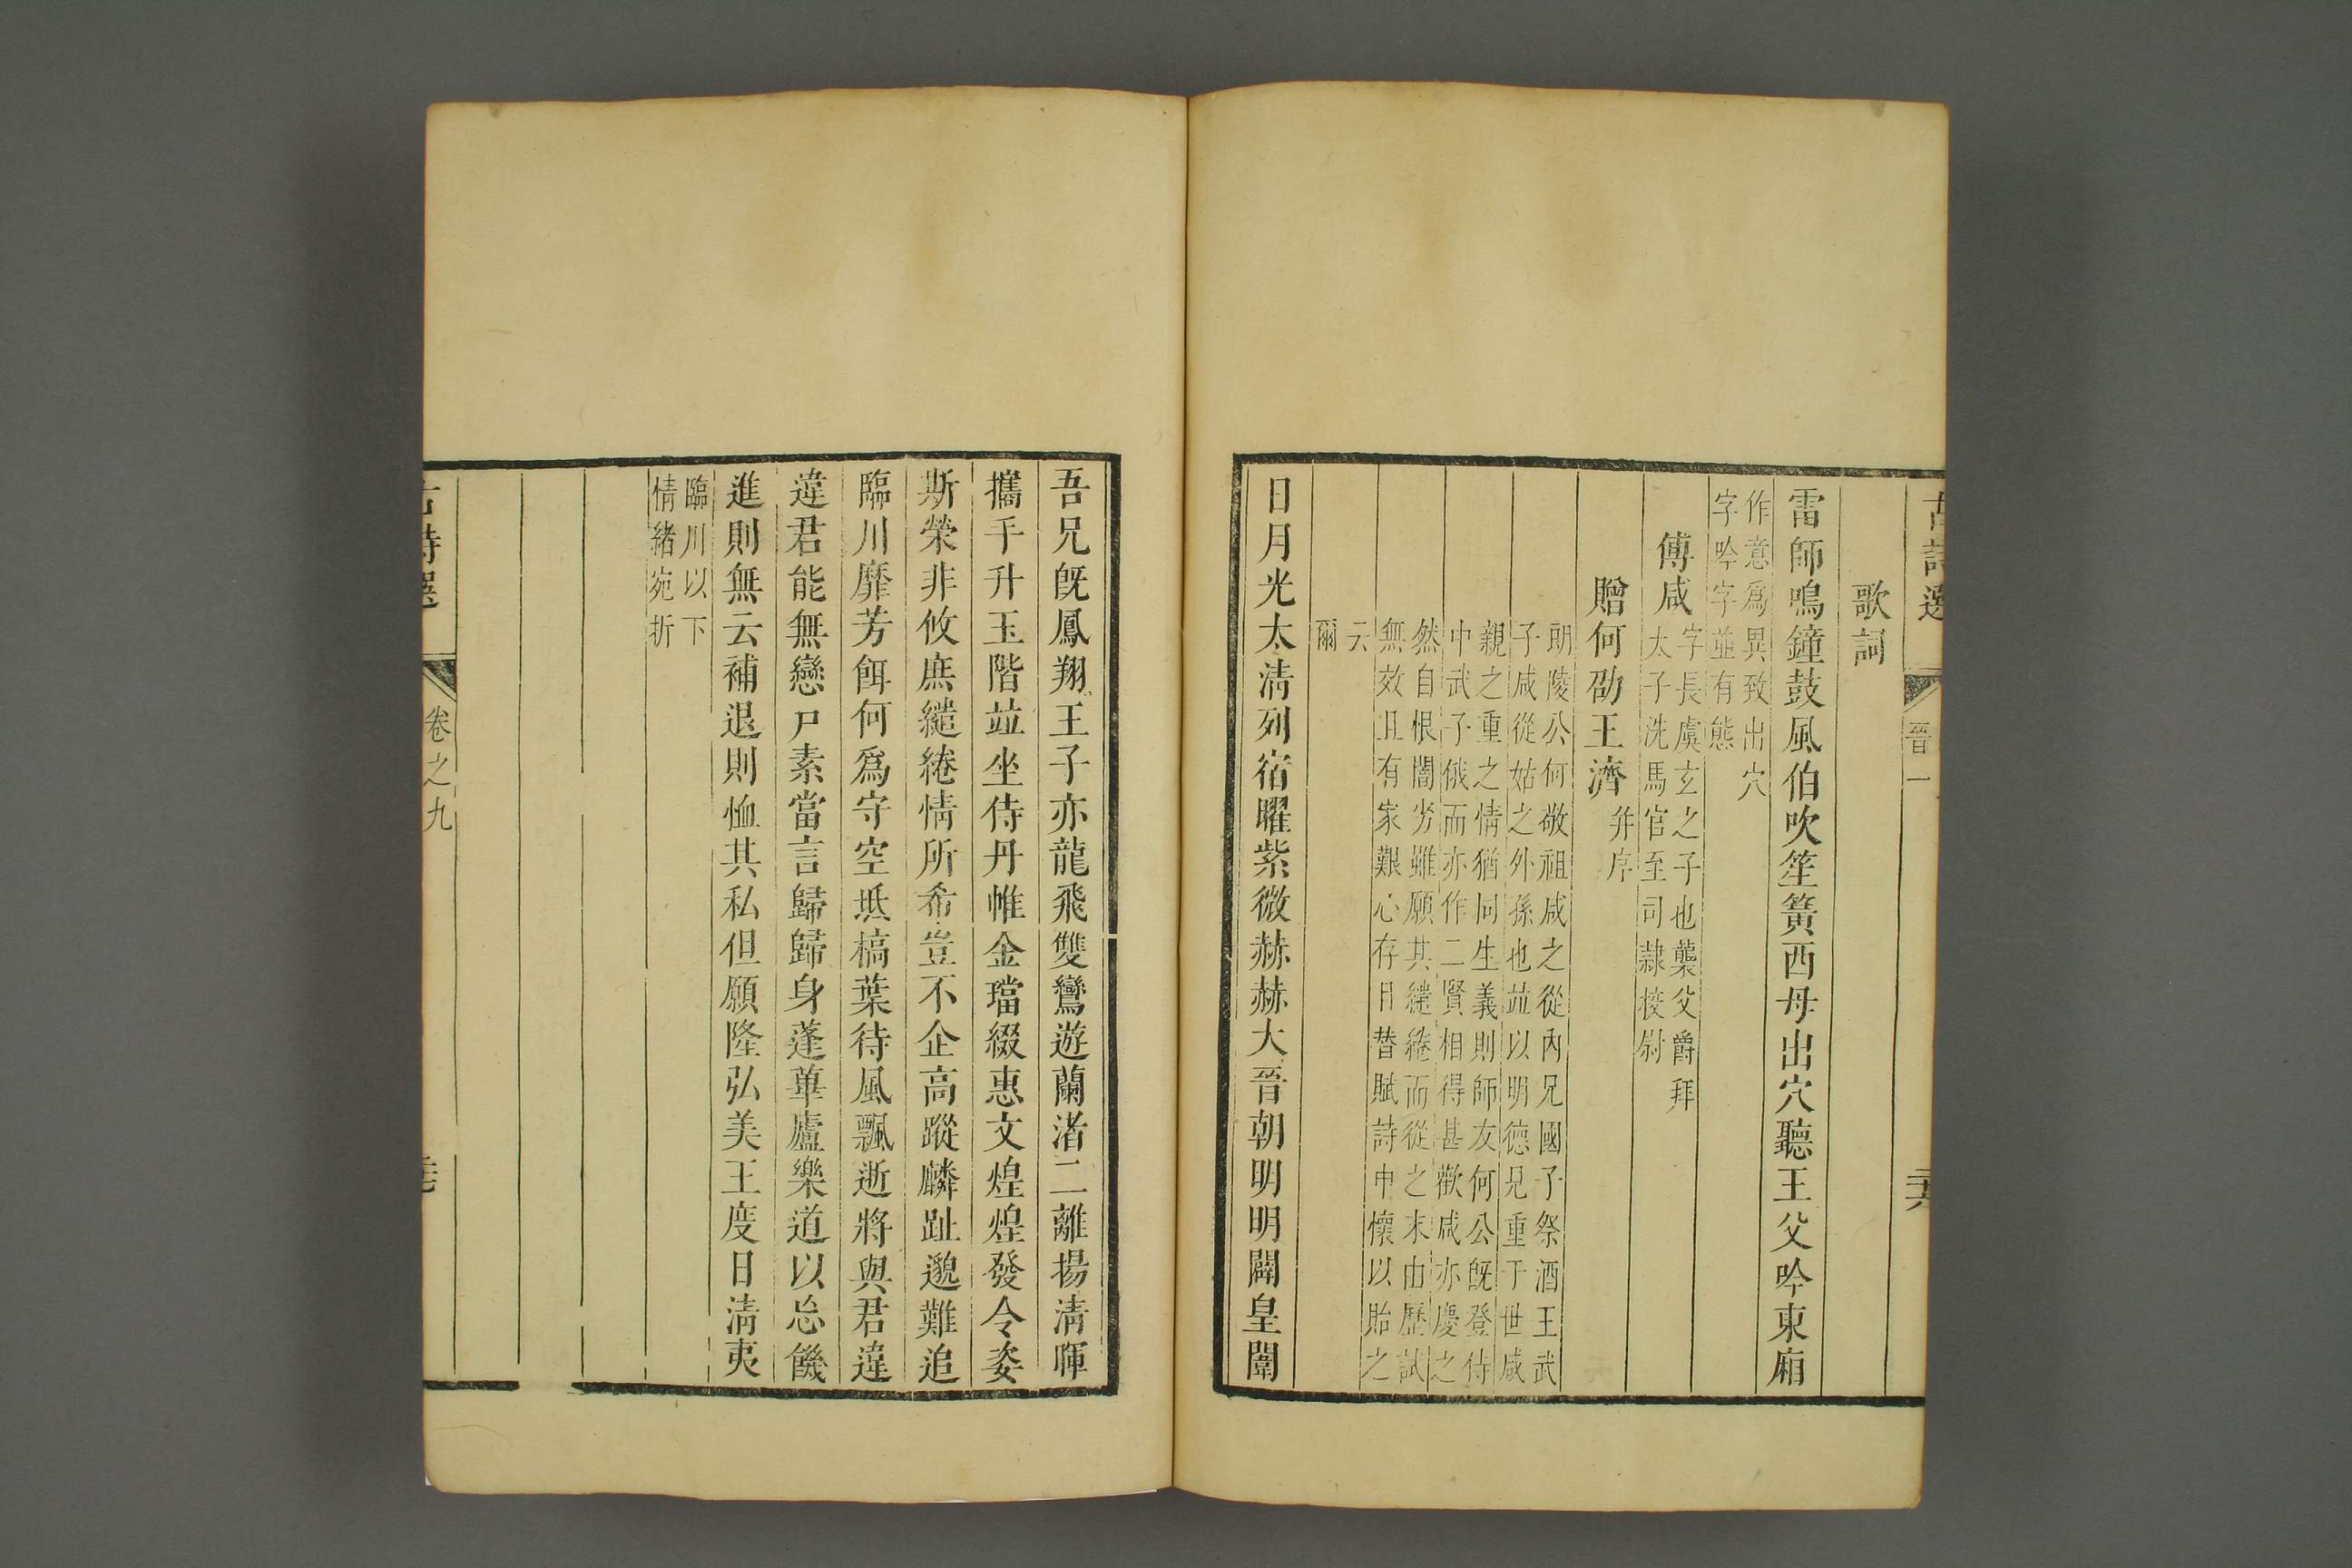 古詩選
晉一
歌詞
雷師鳴鐘鼓風伯吹笙簧西母出穴聽王父吟東廂
作意爲異致出穴
字吟字並有態
傅咸
字長虞玄之子也襲父爵拜
太子洗馬官至司隸挍尉
贈何劭王濟
并序
朗陵公何敬祖咸之從內兄國子祭酒王武
子咸從姑之外孫也竝以明德見重于世咸
親之重之情猶同生義則師友何公旣登侍
中武子俄而亦作二賢相得甚歡咸亦慶之
然自恨闇劣雖願其繾綣而從之末由歷試
無效且有家艱心存目替賦詩申懷以貽之
云
爾
日月光太淸列宿曜紫微赫赫大晉朝明明闢皇闈
吾兄旣鳳翔王子亦龍飛雙鸞遊蘭渚二離揚淸暉
攜手升玉階竝坐侍丹帷金璫綴惠文煌煌發令姿
斯榮非攸庶繾綣情所希豈不企高蹤麟趾邈難追
臨川靡芳餌何爲守空坻槁葉待風飄逝將與君違
違君能無戀尸素當言歸歸身蓬蓽廬樂道以忘饑
進則無云補退則恤其私但願隆弘美王度日淸夷
臨川以下
情緒宛折
古詩選
卷之九